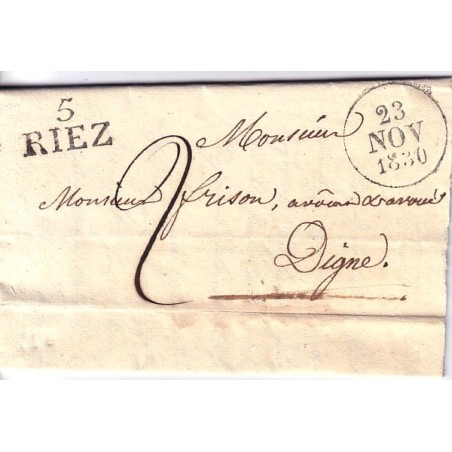 5
RIEZ
23
NOV
1830
Monsieur
2
Monsieur frison, avoué
Digne.